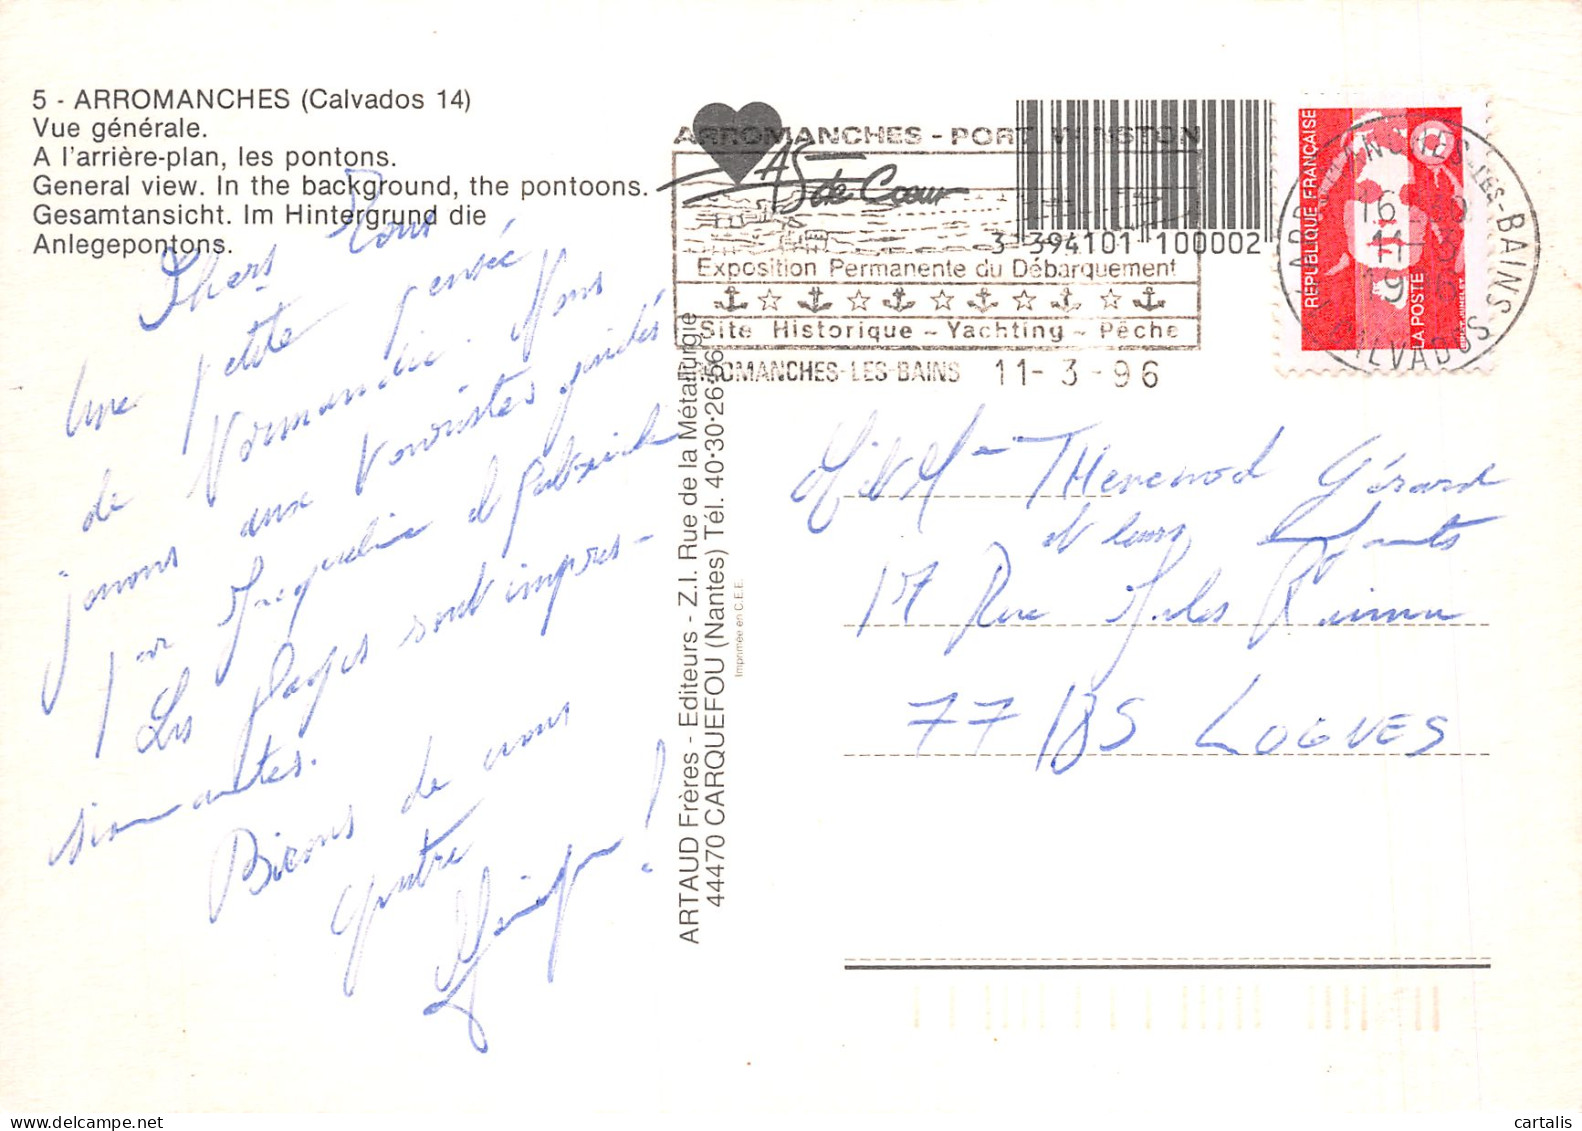 5 - ARROMANCHES (Calvados 14)
Vue générale.
A l'arrière-plan, les pontons.
General view. In the background, the pontoons.
Gesamtansicht. Im Hintergrund die
Anlegepontons.
Chers Tous
Une petite pensée
de Normandie. Nous
jouons aux touristes guidés
par Jacqueline et Patrick
Les plages sont impres-
sionnantes.
Bisons de nous
quatre
!
ARTAUD Frères - Editeurs - Z.I. Rue de la Métallurgie
44470 CARQUEFOU (Nantes) Tél. 40·30·26·56
Imprimée en C.E.E.
ARROMANCHES - PORT WINSTON
AS de Cœur
Exposition Permanente du Débarquement
Site Historique - Yachting - Pêche
ARROMANCHES-LES-BAINS 11-3-96
3 394101 100002
REPUBLIQUE FRANÇAISE
LA POSTE
ARROMANCHES-LES-BAINS
16
11-3
1996
CALVADOS
Gérard
et leurs enfants
17 Rue Jules
77185 LOGNES
cartalis